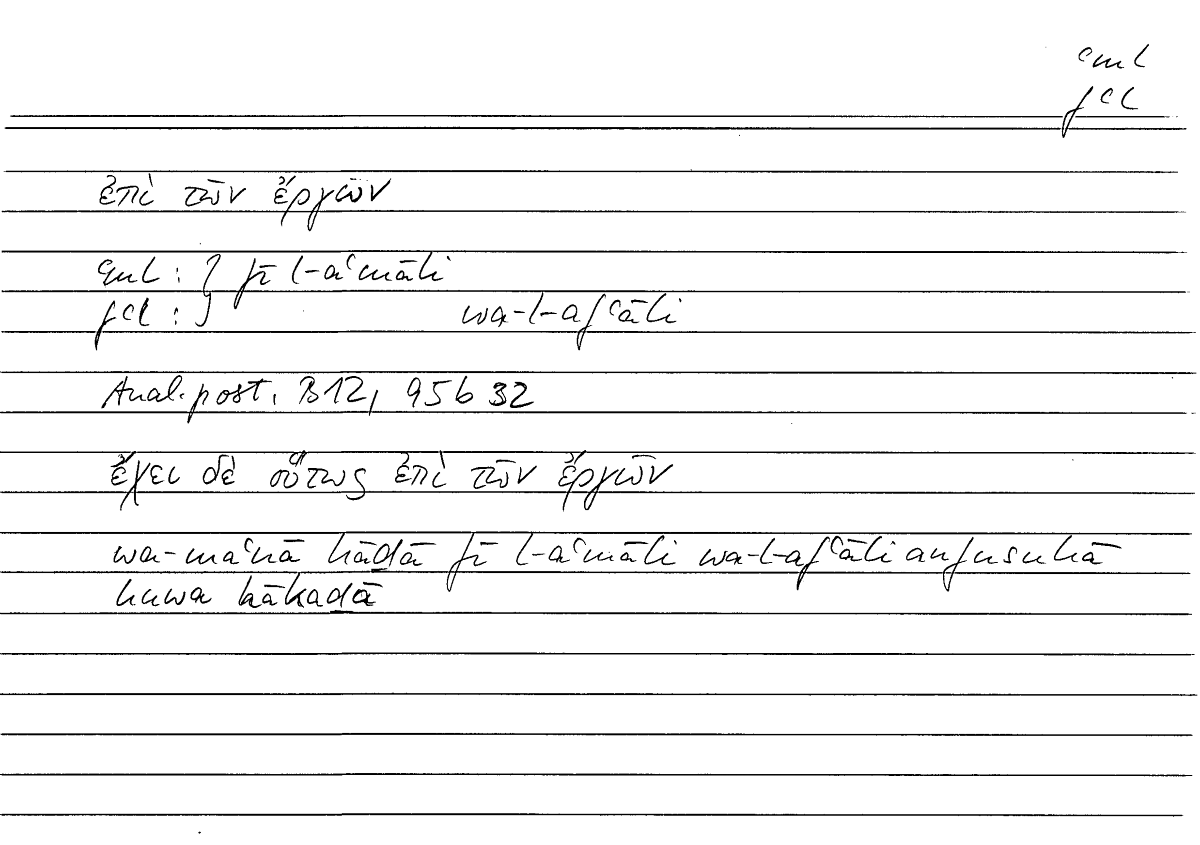 ʿml
fʿl
ἐπὶ τῶν ἔργων
ʿml : } fī l-aʿmāli
fʿl : } wa-l-afʿāli
Anal. post. B12, 95b 32
ἔχει δὲ οὕτως ἐπὶ τῶν ἔργων
wa-maʿnā hāḏā fī l-aʿmāli wa-l-afʿāli anfusuhā
huwa hākaḏā